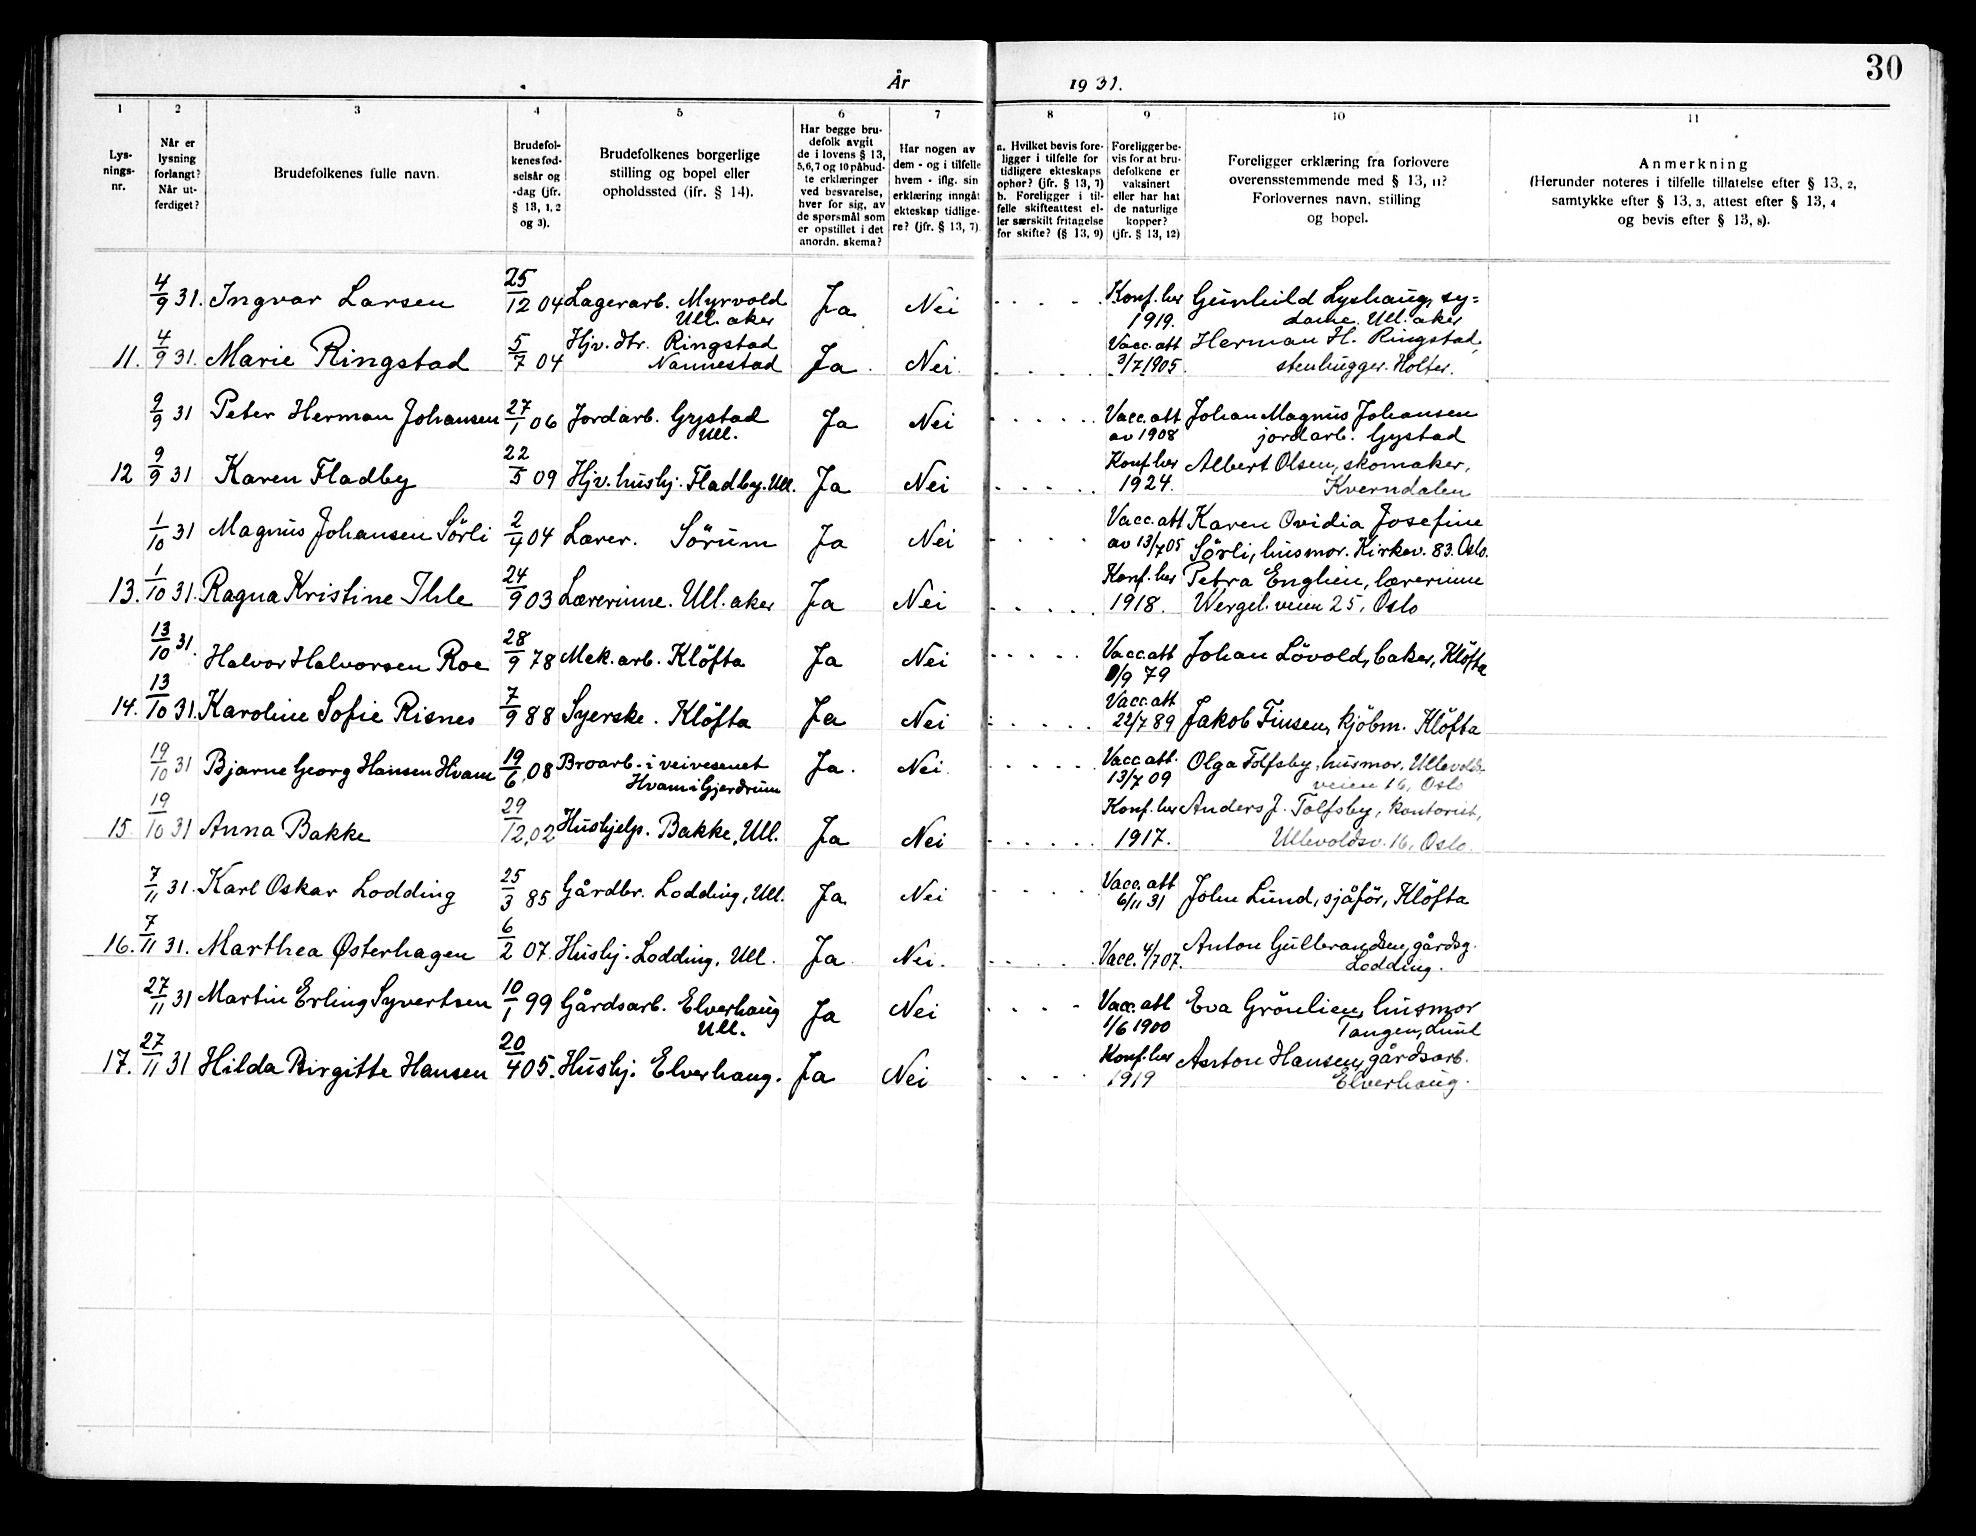 30
År 1931.
1 2 3 4 5 6 7 8 9 10 11
Lys-
nings-
nr.
Når er
lysning
forlangt?
Når ut-
ferdiget?
Brudefolkenes fulle navn.
Brudefol-
kenes fød-
selsår og
-dag (jfr.
§ 13, 1, 2
og 3).
Brudefolkenes borgerlige
stilling og bopel eller
opholdssted (ifr. § 14).
Har begge bru-
defolk avgit
de i lovens § 13,
5,6,7 og 10 påbud-
te erklæringer
ved besvarelse,
hver for sig, av
de spørsmål som
er opstillet i det
anordn. skema?
Har nogen av
dem - og i tilfelle
hvem - iflg. sin
erklæring inngåt
ekteskap tidlige-
re? (jfr. § 13, 7).
a. Hvilket bevis fore-
ligger i tilfelle for
tidligere ekteskaps
ophør? (jfr. § 13, 7)
b. Foreligger i til-
felle skifteattest el-
ler særskilt fritagelse
for skifte? (§ 13, 9)
Foreligger be-
vis for at bru-
defolkene er
vaksinert
eller har hat
de naturlige
kopper?
(jfr. § 13, 12)
Foreligger erklæring fra forlovere
overensstemmende med § 13, 11?
Forlovernes navn, stilling
og bopel.
Anmerkning
(Herunder noteres i tilfelle tillatelse efter § 13, 2,
samtykke efter § 13, 3, attest efter § 13, 4
og bevis efter § 13, 8).
4/9 31. Ingvar Larsen 25/12 04 Lagerarb. Myrvold Ja Nei . . . . Konf. her Gunhild Lyshaug, sy=
Ull.aker 1919. dame. Ull.aker
11. 4/9 31. Marie Ringstad 5/7 04 Hjv. dtr. Ringstad Ja. Nei. . . . . Vacc. att Herman H. Ringstad,
Nannestad 3/7 1905. stenhugger. Holter.
9/9 31 Peter Herman Johansen 27/1 06 Jordarb. Gystad Ja Nei . . . . . Vacc. att Johan Magnus Johansen
Ull. av 1908 jordarb. Gystad
12 9/9 31 Karen Fladby 22/5 09 Hjv. hushj. Fladby. Ull. Ja Nei . . . . . Konf. her Albert Olsen, skomaker,
1924. Kverndalen
1/10 31 Magnus Johansen Sörli 2/4 04 Lærer. Sörum Ja Nei . . . . Vacc. att Karen Ovidia Josefine
av 13/7 05 Sörli, husmor. Kirkev. 83. Oslo.
13. 1/10 31. Ragna Kristine Ihle 24/9 03 Lærerinne. Ull.aker Ja Nei . . . . . Konf. her Petra Enghien, lærerinne
1918. Wergel. veien 25, Oslo
13/10 31. Halvor Halvorsen Roe 28/9 78 Mek. arb. Klöfta Ja Nei . . . . . Vacc. att Johan Lövold, baker, Klöfta
/9 79
14. 13/10 31. Karoline Sofie Risnes 7/9 88 Syerske. Klöfta Ja Nei . . . . . Vacc. att
22/7 89 Jakob Finsen, kjöbm. Klöfta
19/10 31 Bjarne Georg Hansen Hvam 19/6, 08 Broarb. i veivesenet Ja. Nei. . . . . . Vacc. att. Olga Tolfsby, husmor, Ullevolds-
Hvam i Gjerdrum 13/7 09 veien 16, Oslo
15. 19/10 31 Anna Bakke 29/12, 02 Hushjelp. Bakke, Ull. Ja Nei . . . . . . Konf. her Anders J. Tolfsby, kontorist,
1917. Ullevoldsv. 16, Oslo.
7/11 31. Karl Oskar Lodding 25/3 85 Gårdbr. Lodding, Ull. Ja Nei . . . . . Vacc. att
6/11 31 John Lund, sjåför, Klöfta
16. 7/11 31. Marthea Østerhagen 6/2 07. Hushj. Lodding, Ull. Ja Nei. . . . . . Vacc. 4/7 07. Anton Gulbrandsen, gårdsg.
Lodding.
27/11 31 Martin Erling Syvertsen 10/1 99 Gårdsarb. Elverhaug Ja Nei . . . . Vacc. att Eva Grönlien, husmor
Ull. 1/6 1900 Tangen,
17. 27/11 31 Hilda Birgitte Hansen 20/4 05. Hushj. Elverhaug. Ja Nei . . . . Konf. her Anton Hansen, gårdsarb.
1919 Elverhaug.